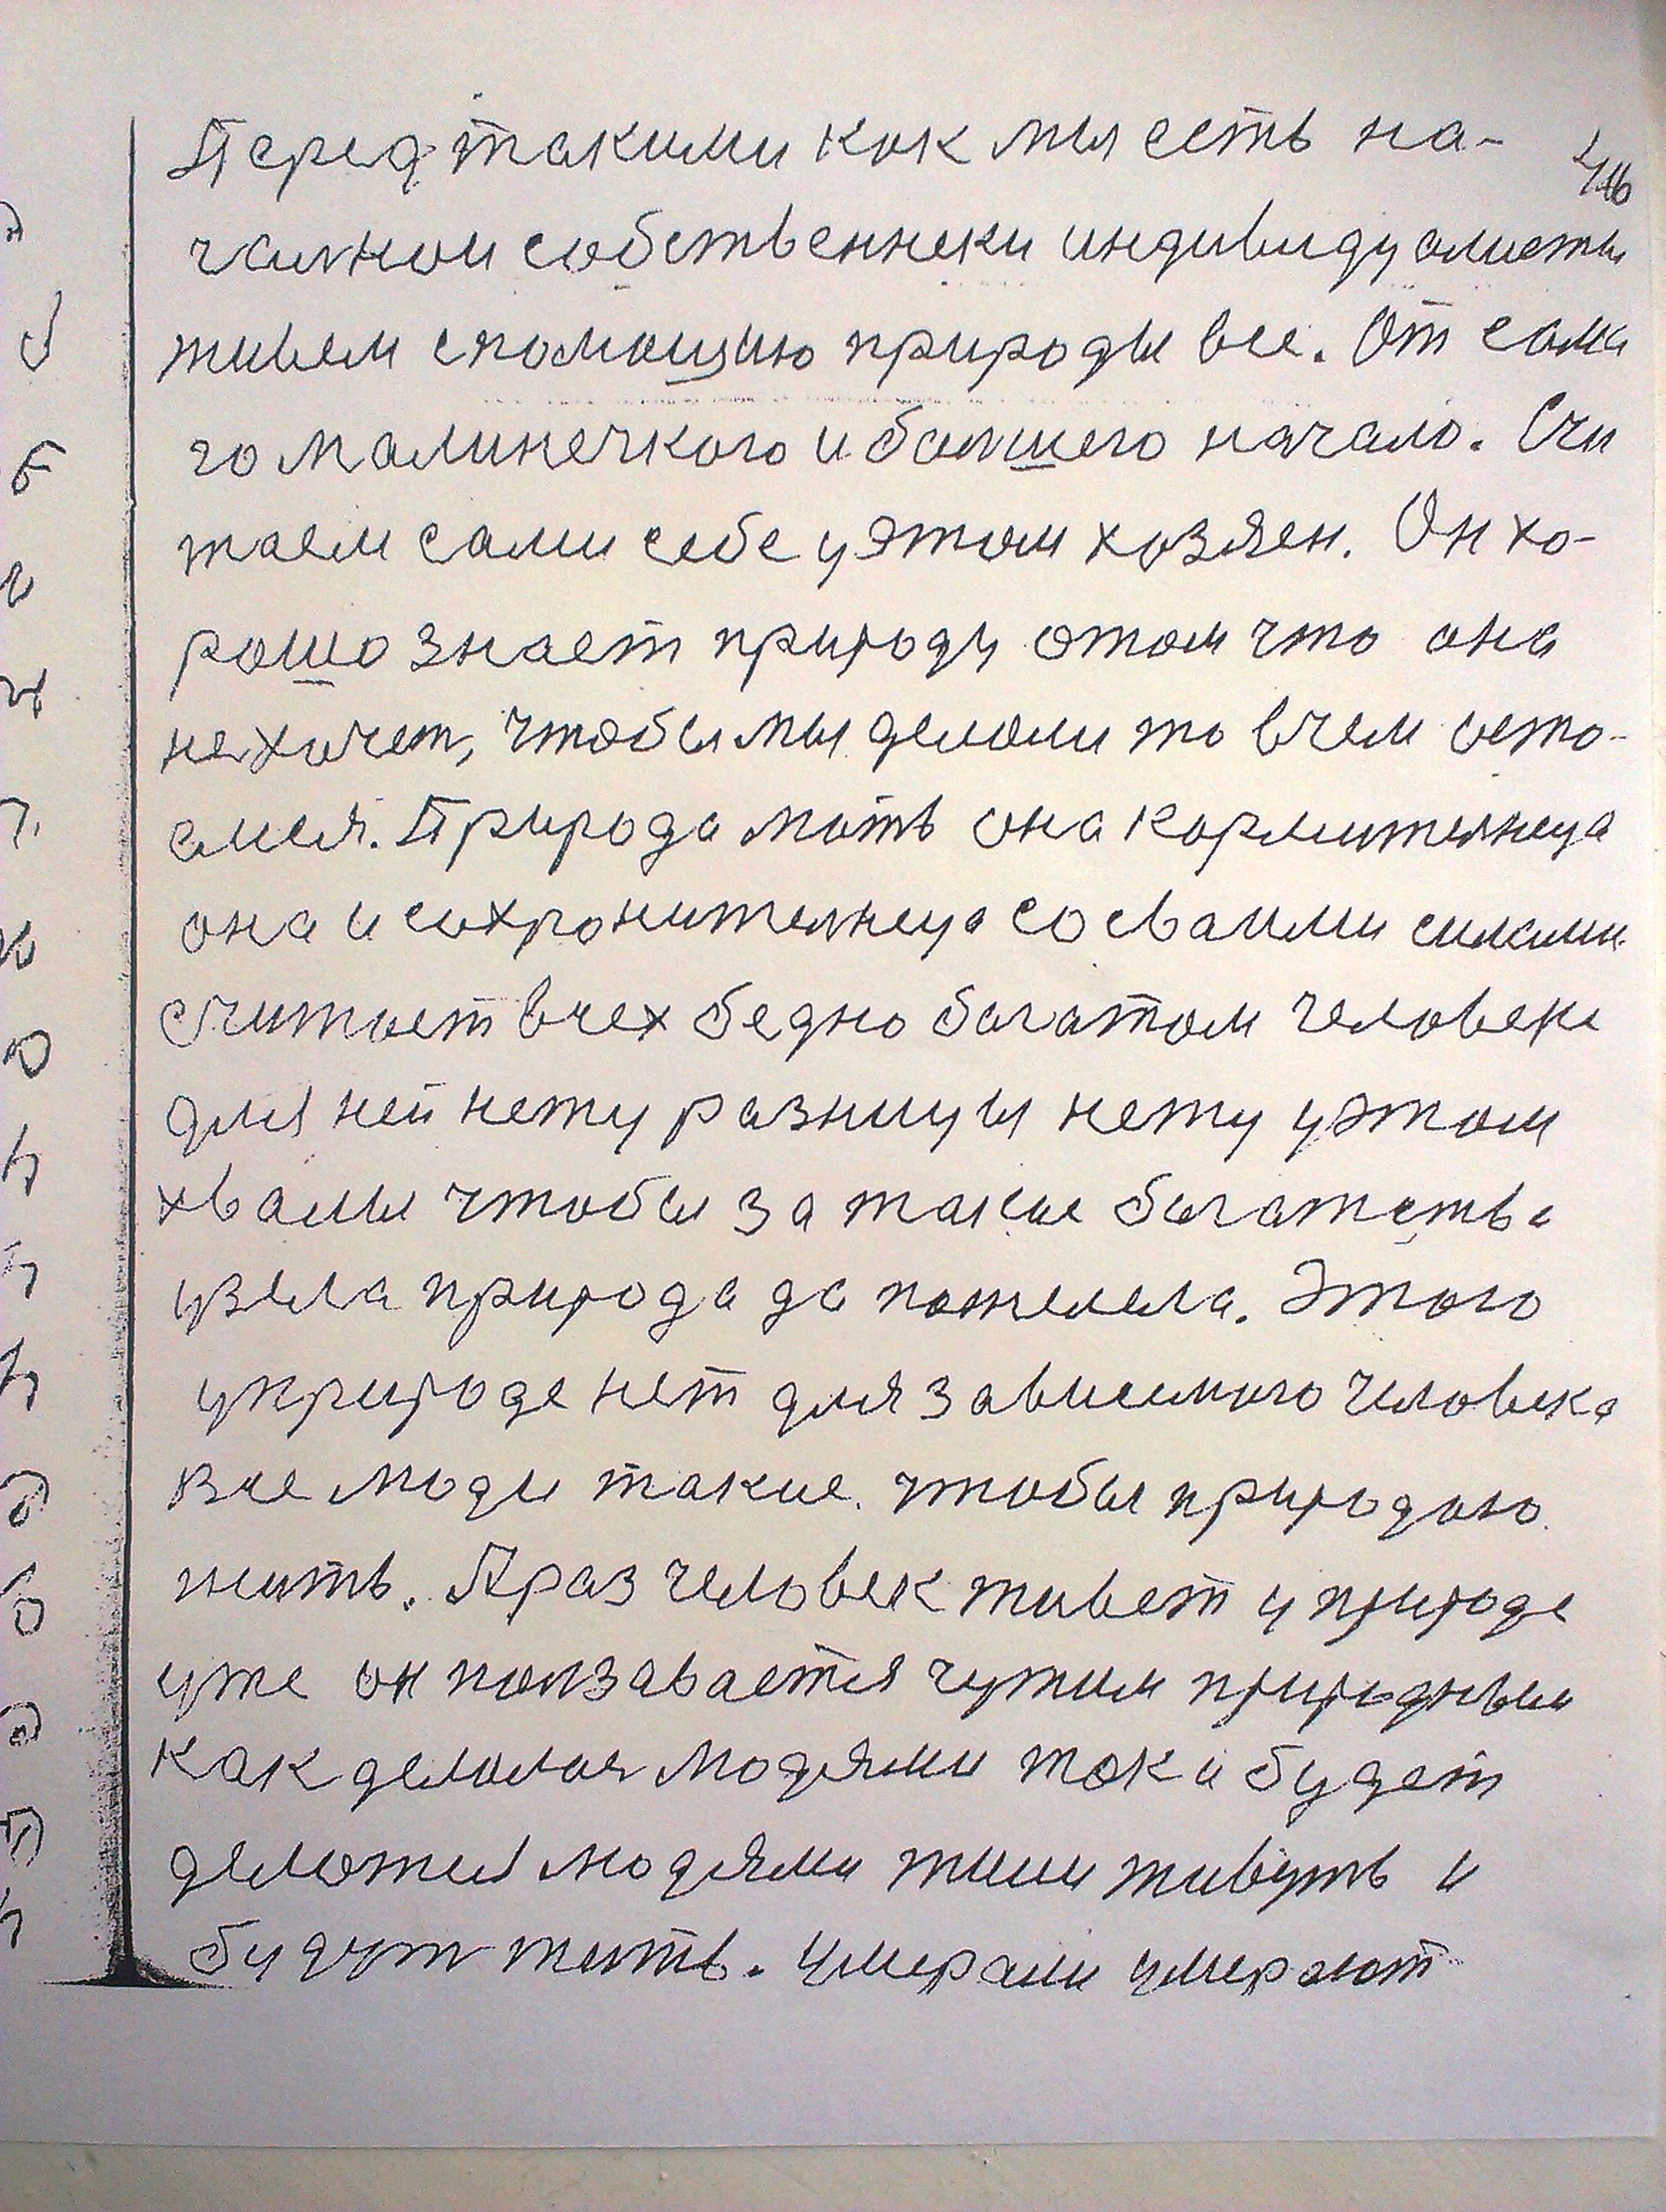 Перед такими как мы есть на-
46
чалнои собственнеки индивидуалисты
живем спомощию природы все. От сама
го малинечкого и балшего начало. Счи
таем сами себе у этом хозяен. Он хо-
рошо знает природу отом что она
не хочет, чтобы мы делали то в чем оста-
лися. Природа мать она кормителнеца
она и сохронителнеца со сваими силами
считает всех бедно богатом человеке
для ней нету разницы нету у этом
хвалы чтобы за такие богатства
узяла природа да пожелела. Этого
у природе нет для зависимого человека
все люди такие. чтобы природою
жить. А раз человек живет у природе
уже он ползавается чужим природным
как делолося людями так и будет
делатися людями жили живуть и
будут жить. Умерали умерают